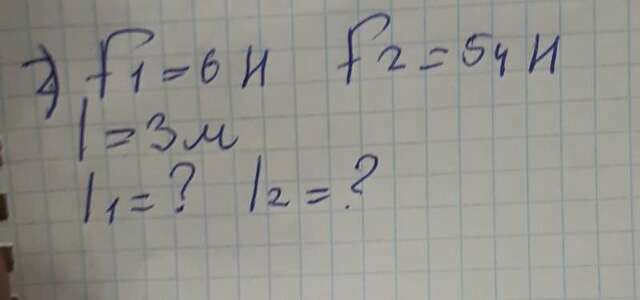 2) F1=6 H F2=54 H
l=3м
l1=? l2=?